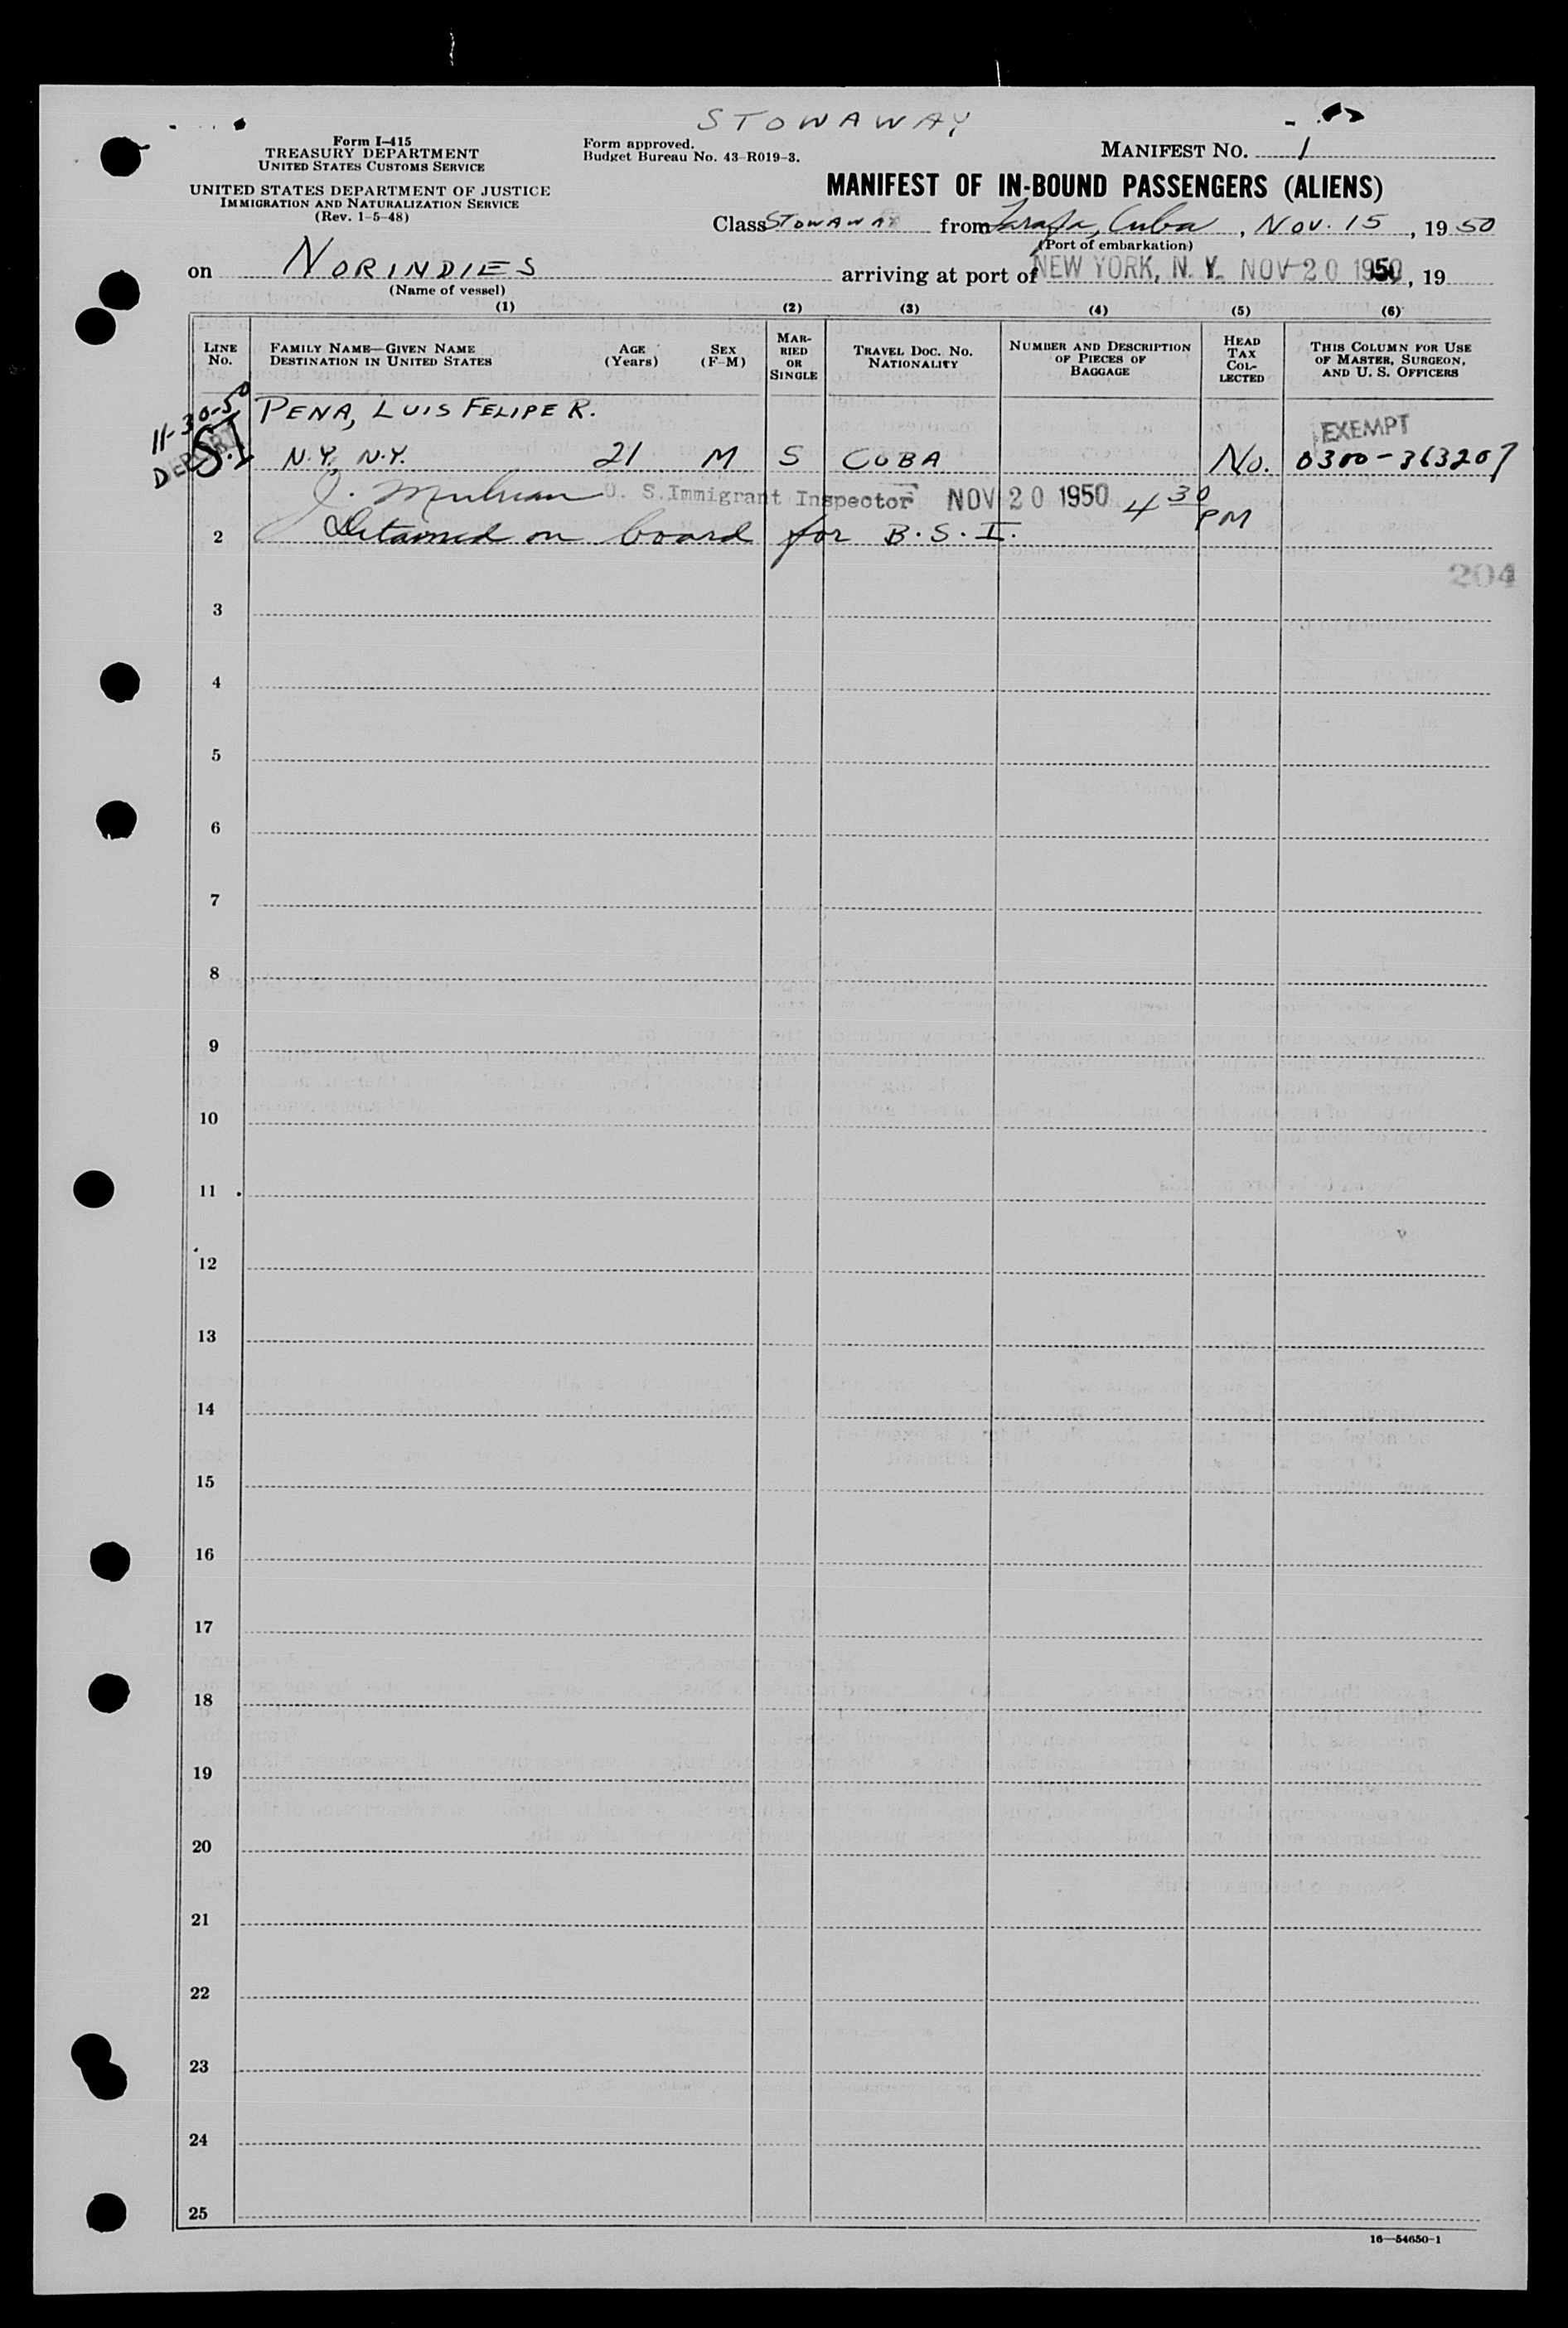 STOWAWAY
Form I-415
TREASURY DEPARTMENT
UNITED STATES CUSTOMS SERVICE
UNITED STATES DEPARTMENT OF JUSTICE
IMMIGRATION AND NATURALIZATION SERVICE
(Rev. 1-5-48)
Form approved.
Budget Bureau No. 43-R019-3.
MANIFEST NO. 1
MANIFEST OF IN-BOUND PASSENGERS (ALIENS)
Class STOWAWAY from Tarafa, Cuba, NOV. 15, 1950
(Port of embarkation)
on NORINDIES arriving at port of NEW YORK, N. Y. NOV 20 1950, 19
(Name of vessel)
(1) (2) (3) (4) (5) (6)
LINE No. FAMILY NAME—GIVEN NAME DESTINATION IN UNITED STATES AGE (Years) SEX (F-M) MARRIED OR SINGLE TRAVEL DOC. NO. NATIONALITY NUMBER AND DESCRIPTION OF PIECES OF BAGGAGE HEAD TAX COLLECTED THIS COLUMN FOR USE OF MASTER, SURGEON, AND U. S. OFFICERS
11-30-50
DEPORT
S.I
PENA, LUIS FELIPE R.
EXEMPT
N.Y., N.Y. 21 M S CUBA No. 0300-363207
J. U. S. Immigrant Inspector NOV 20 1950 4 30 PM
2 Detained on board for B.S.I.
204
3
4
5
6
7
8
9
10
11
12
13
14
15
16
17
18
19
20
21
22
23
24
25
16—54650-1